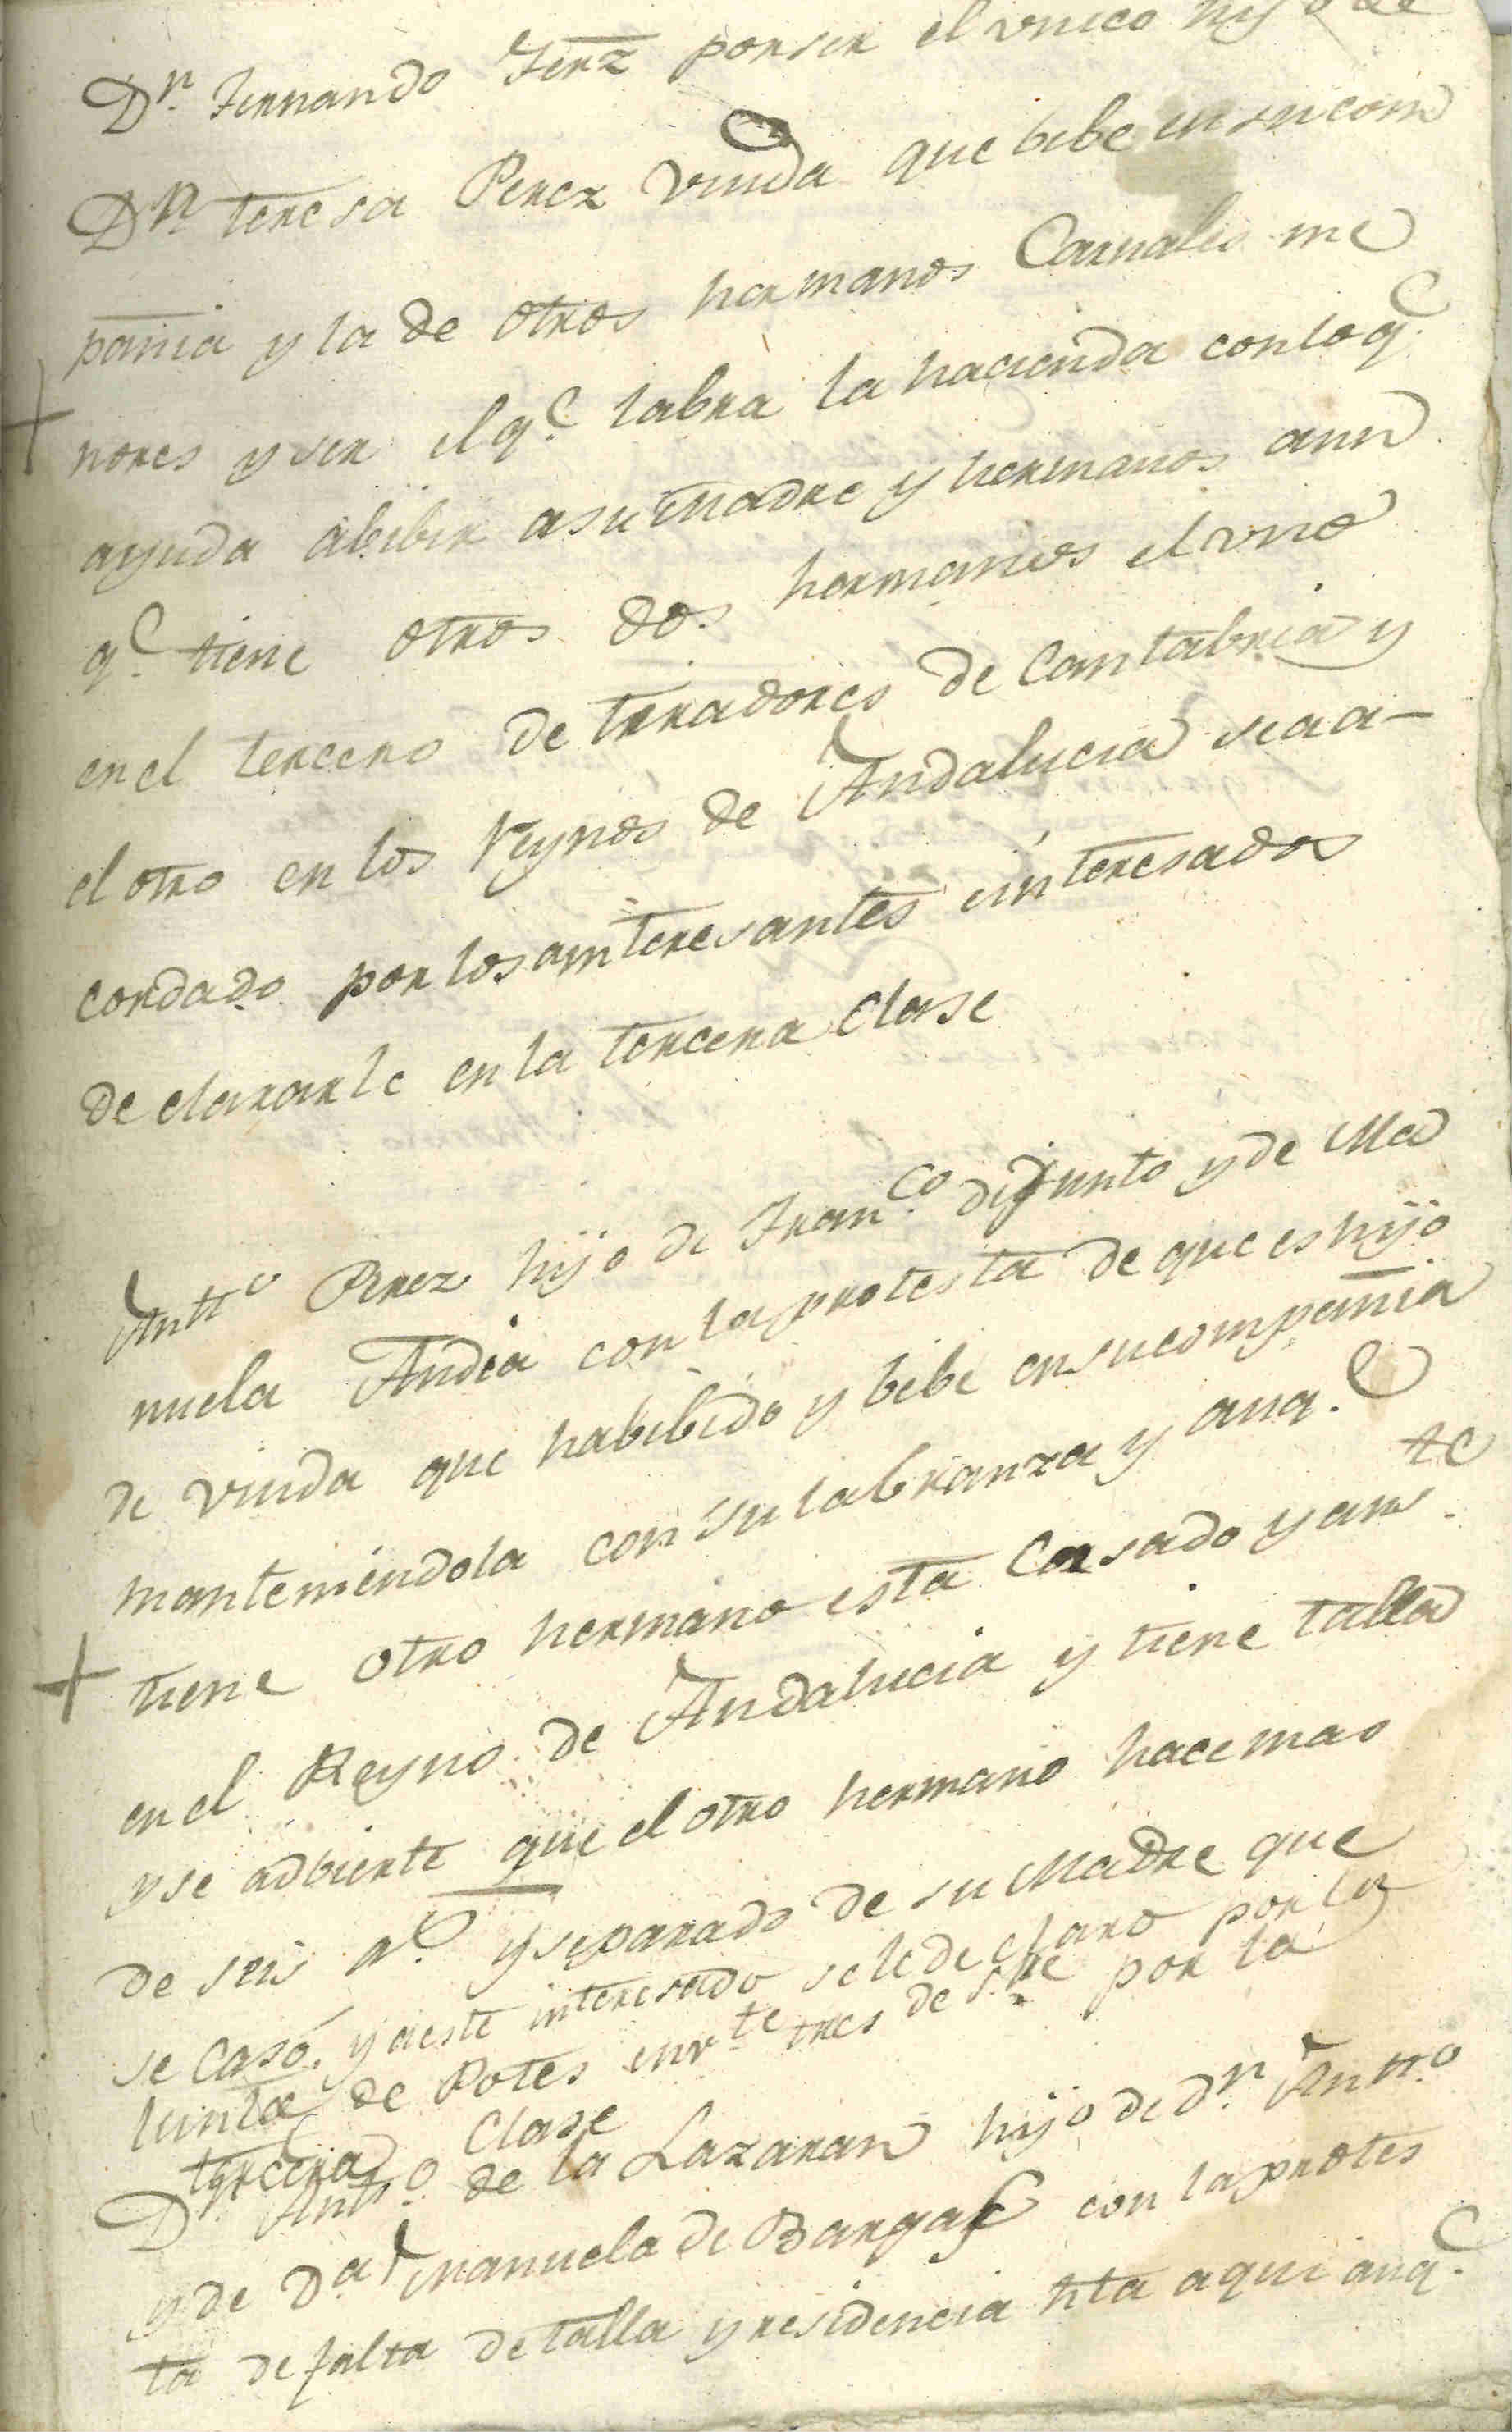 Dn. Fernando Ferz por ser el vnico hijo de
Dn. teresa Perez viuda que bibe en su com
pania y la de otros hermanos Carnales me
nores y ser el q.e labra la hacienda con lo q.e
ayuda abibir a su madre y hermanos aun
q.e tiene otros dos hermanos el vno
en el tercero de tiradores de Cantabria y
el otro en los Reynos de Andalucia sea a-
cordado por los interesantes e interesados
declararle en la tercera clase
Antto Perez hijo de Fran.co difunto y de Ma
nuela Andea con la protesta de que es hijo
de viuda que habibido y bibe en su compañia
manteniendola con su labranza y auq.e
tiene otro hermano esta Casado y auste
en el Reyno de Andalucia y tiene talla
y se adbierte que el otro hermano hace mas
de seis a.s y separado de su Madre que
se Casó. y a este interesado se le declaro por la
Junta de Potes en v.te tres de S.bre por la
tercera Clase
Dn. Antto de la Lazaran hijo de dn. Antto
y de Da. Manuela de Bargas con la protes
ta de falta de talla y residencia hta aqui auq.e